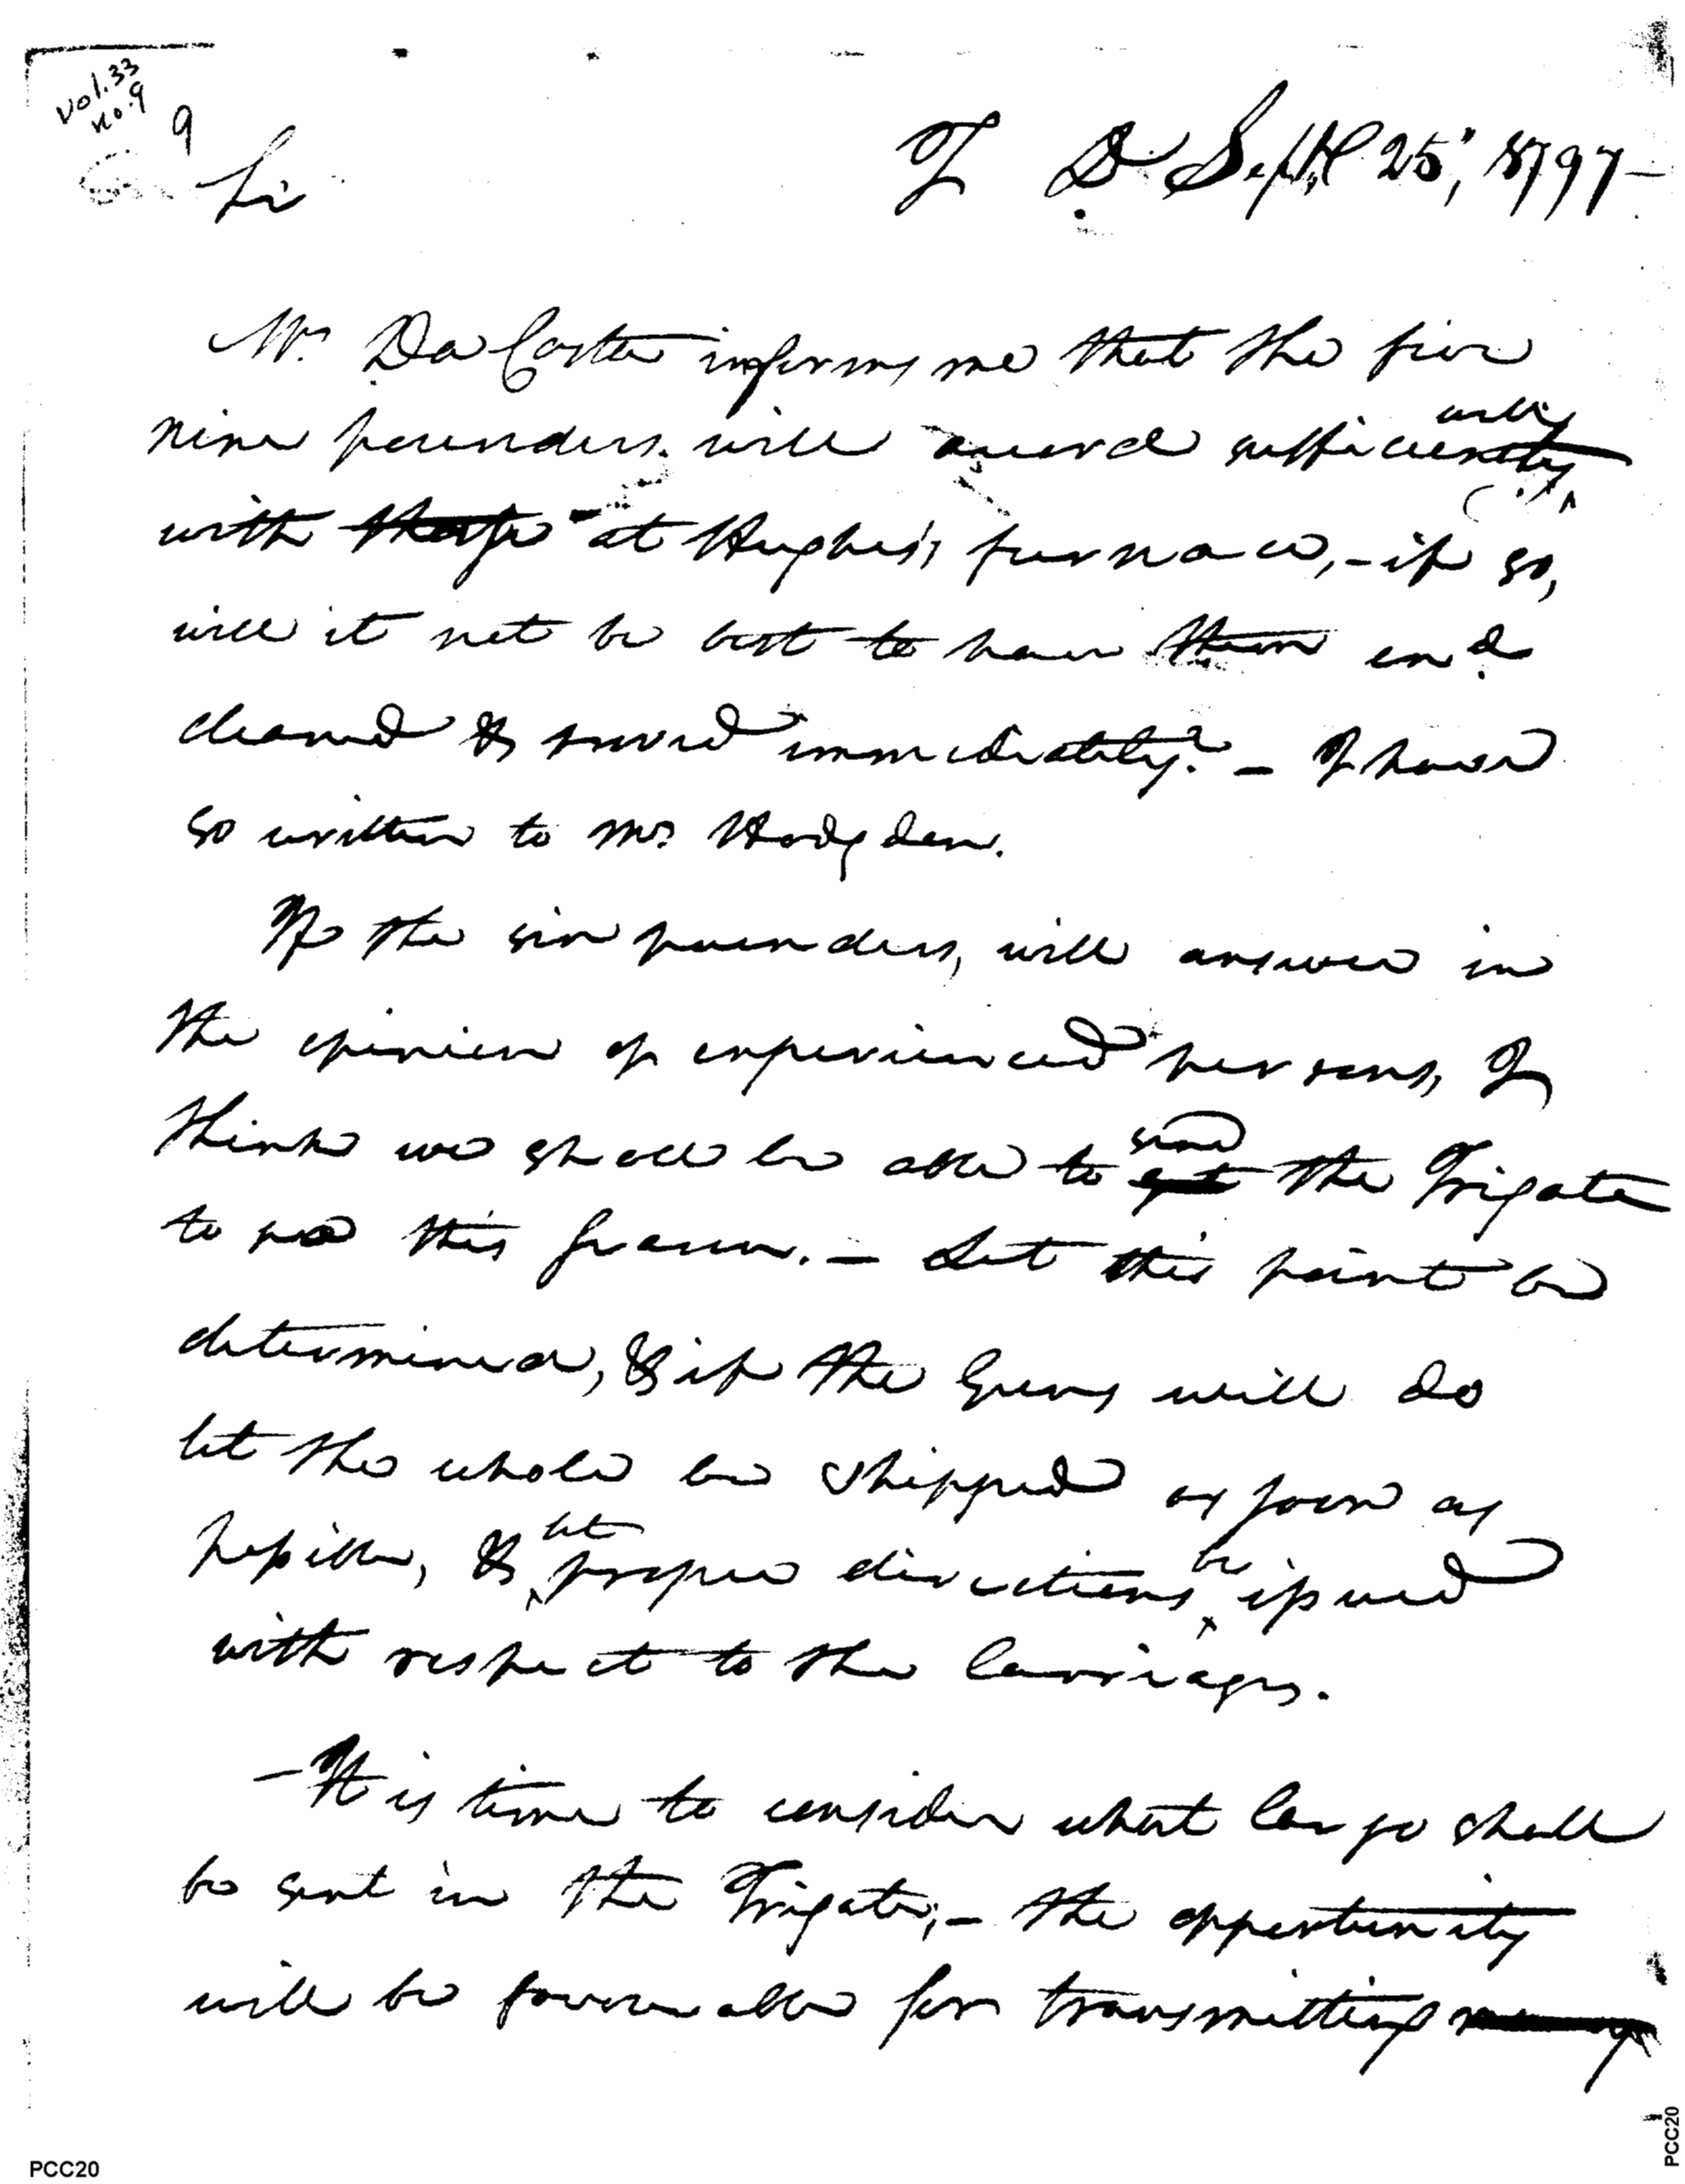 Vol. 33
No. 9
9
Sir
T D. Sept. 25, 1797 -
Mr. Da Costa informs me that the
nine pounders will accord sufficiently well
with those at Hughes's furnace, - if so,
will it not be best to have them
cleaned & proved immediately? - I have
so written to Mr. Hodgden.
If the six pounders, will answer in
the opinion of experienced persons, I
think we shall be able to get send the Frigate
to sea this season. - Let this point be
determined, & if the Guns will do
let the whole be shipped as soon as
possible, & let proper directions be issued
with respect to the Carriages.
- It is time to consider what Cargo shall
be sent in the Frigate; - the opportunity
will be favorable for transmitting
PCC20
PCC20